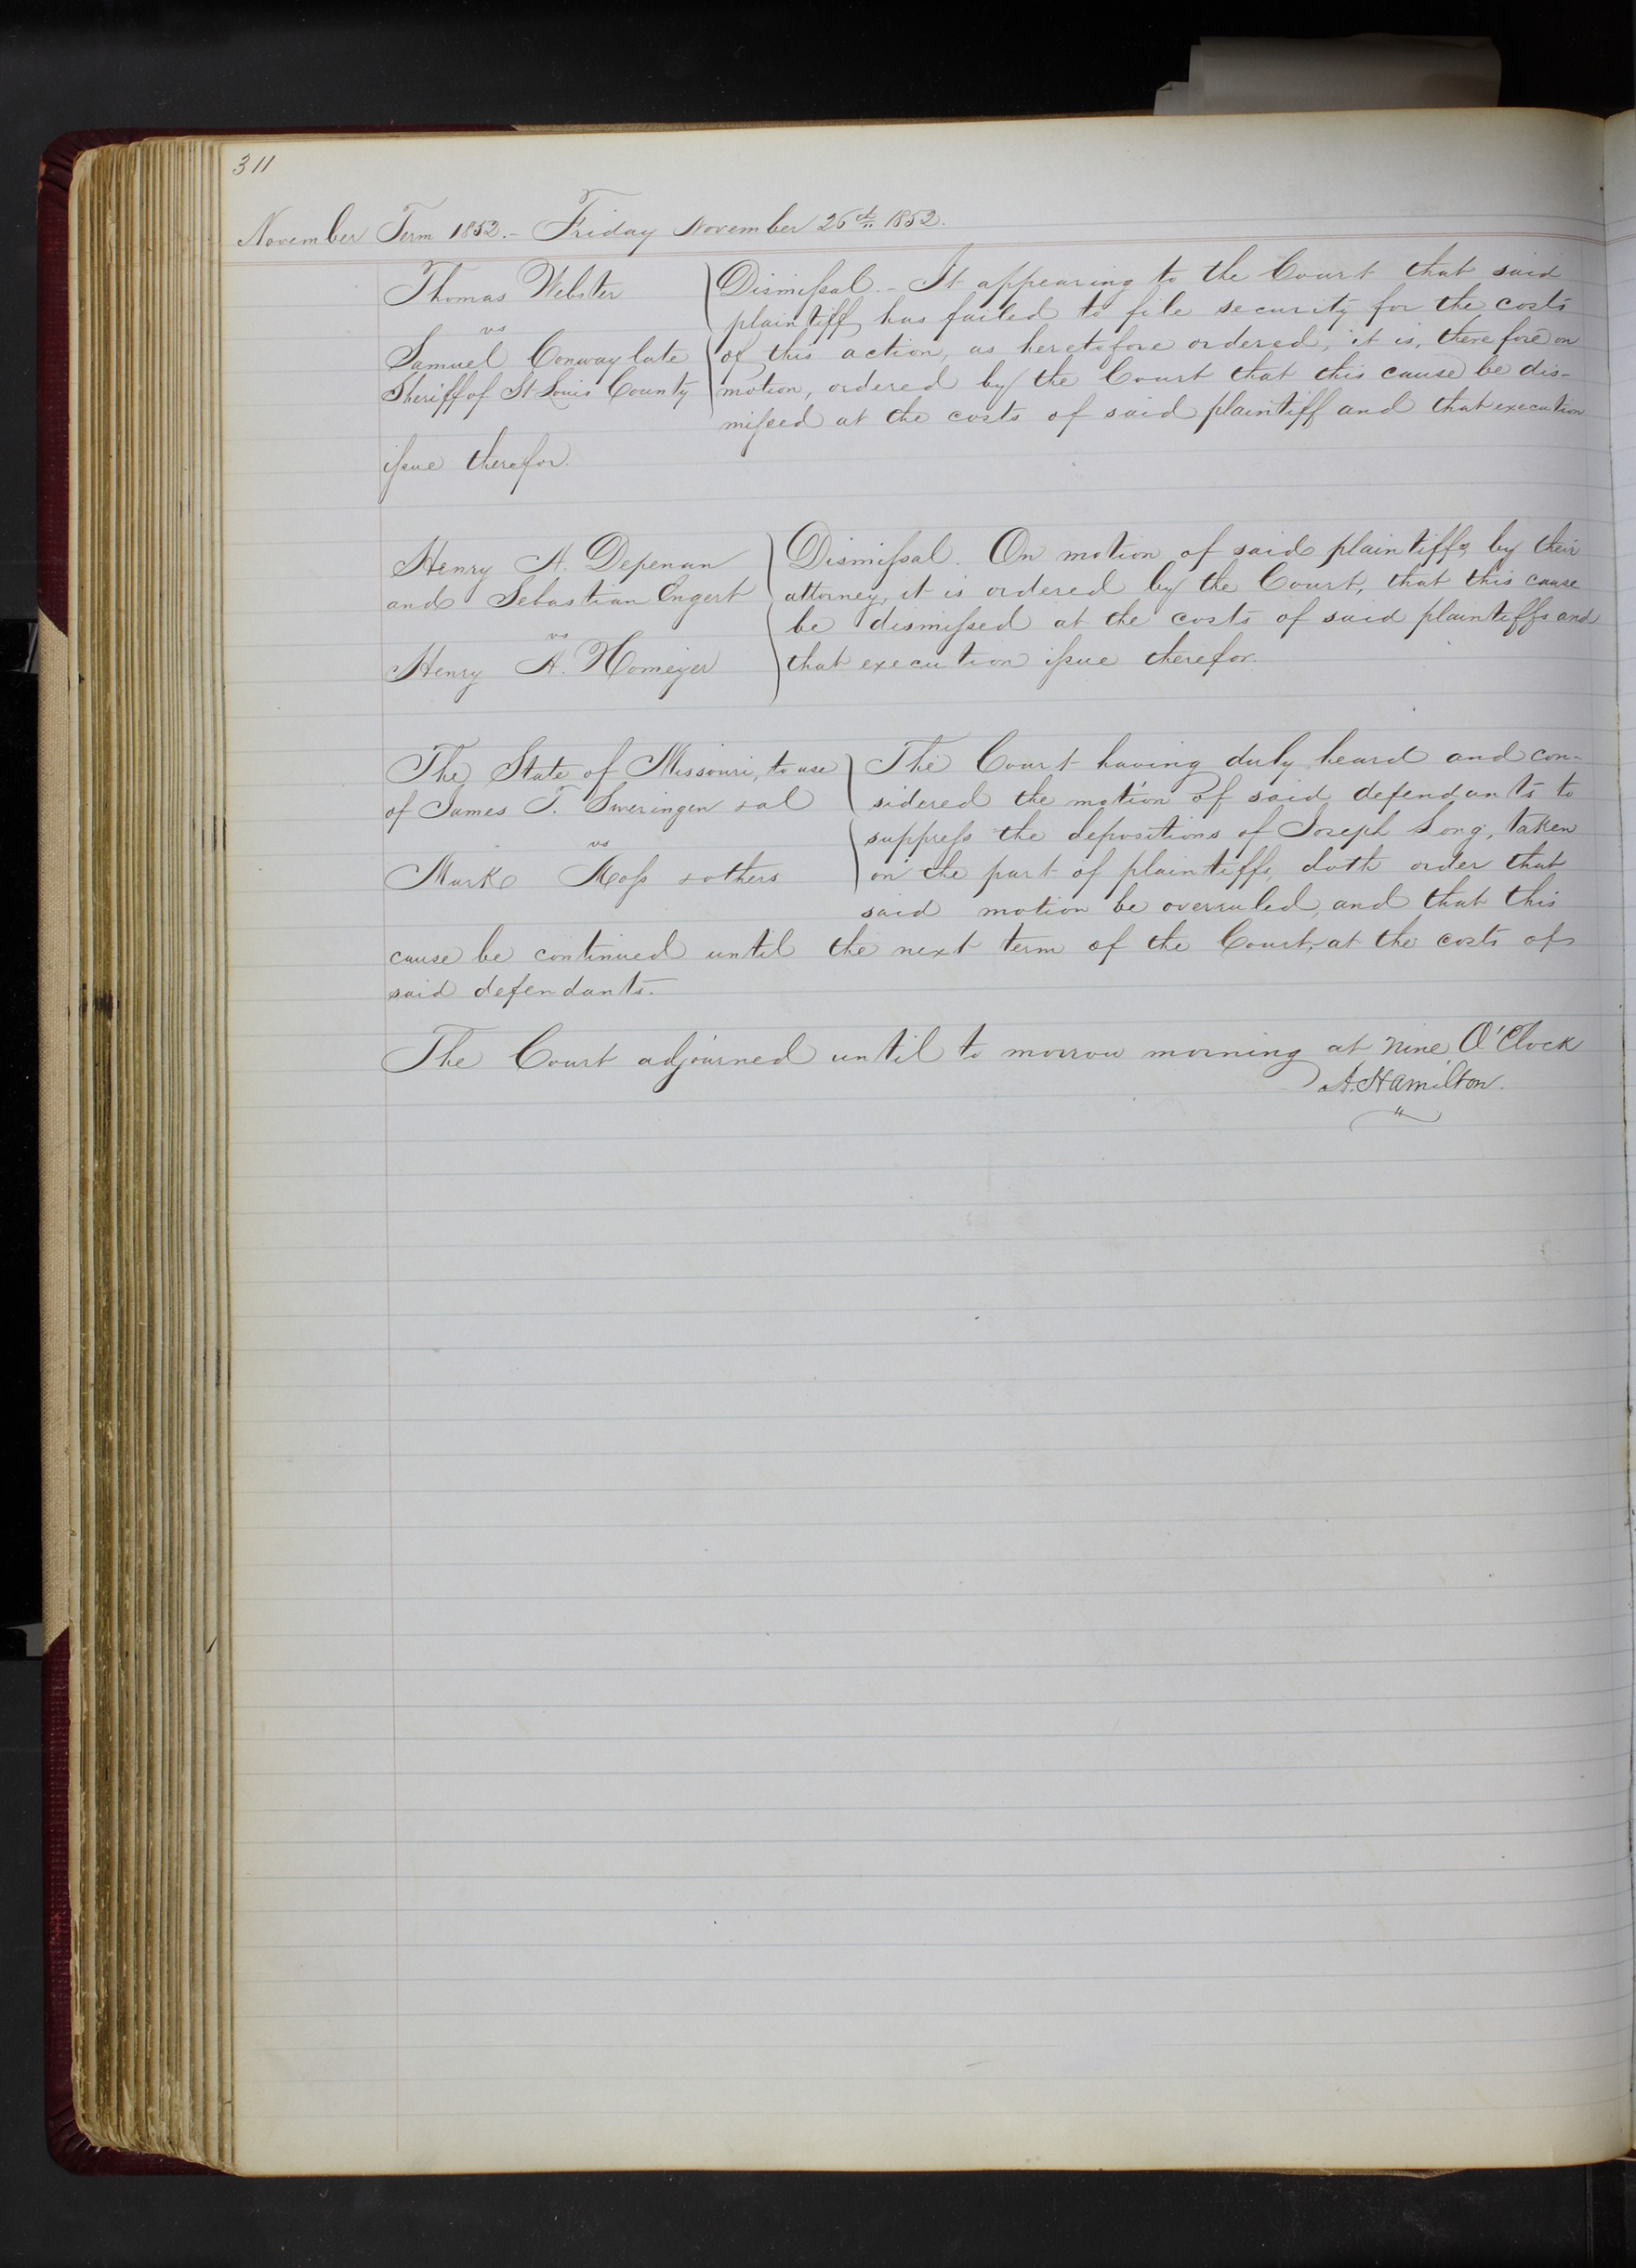 311
November Term 1852. - Friday November 26th 1852.
Thomas Webster
vs
Samuel Conway late
Sheriff of St Louis County
Dismissal. - It appearing to the Court that said
plaintiff has failed to file security for the costs
of this action, as heretofore ordered, it is, therefore on
motion, ordered by the Court that this cause be dis-
missed at the costs of said plaintiff and that execution
issue therefor.
Henry A. Depenau
and Sebastian Engert
vs
Henry A. Homeyer
Dismissal. On motion of said plaintiffs, by their
attorney, it is ordered by the Court, that this cause
be dismissed at the costs of said plaintiffs and
that execution issue therefor.
The State of Missouri, to use
of James T. Sweringen & al
vs
Mark Moss & others
The Court having duly heard and con-
sidered the motion of said defendants to
suppress the depositions of Joseph Long, taken
on the part of plaintiffs, doth order that
said motion be overruled, and that this
cause be continued until the next term of the Court, at the costs of
said defendants.
The Court adjourned until to morrow morning at nine O'Clock
A. Hamilton.